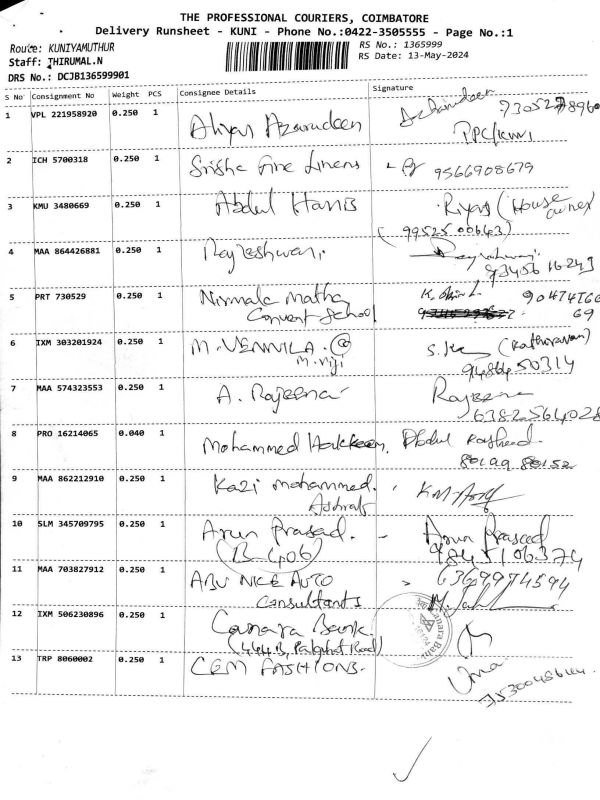 THE PROFESSIONAL COURIERS, COIMBATORE
Delivery Runsheet - KUNI - Phone No.:0422-3505555 - Page No.:1
Route: KUNIYAMUTHUR
RS No.: 1365999
Staff: THIRUMAL.N
RS Date: 13-May-2024
DRS No.: DCJB136599901
S No Consignment No Weight PCS Consignee Details Signature
1 VPL 221958920 0.250 1 Aliyar Azarudeen
PPC/KUNI
2 ICH 5700318 0.250 1 Srisha Fine Linens 9566908679
3 KMU 3480669 0.250 1 Abdul Harris Riyas (House owner)
(99525 00643)
4 MAA 864426881 0.250 1 Rajeshwari
93456 16243
5 PRT 730529 0.250 1 Nirmala Matha 90474766
Convent School 69
6 IXM 303201924 0.250 1 M. VENNILA. @ S.K (Kathiravan)
M. Viji 94864 50314
7 MAA 574323553 0.250 1 A. Rajeena Rajeena
6382564028
8 PRO 16214065 0.040 1 Mohammed Hakkeem, Abdul Rasheed
80199 80152
9 MAA 862212910 0.250 1 Kazi Mohammed. K.M. Asraf
Ashraf
10 SLM 345709795 0.250 1 Arun Prasad. - Arun Prasad
(B-406) 9845106374
11 MAA 703827912 0.250 1 ABU NICE AUTO
Consultants
12 IXM 506230896 0.250 1 Canara Bank
(464 B, Palghat Road)
13 TRP 8060002 0.250 1 CEM FASHIONS. Uma